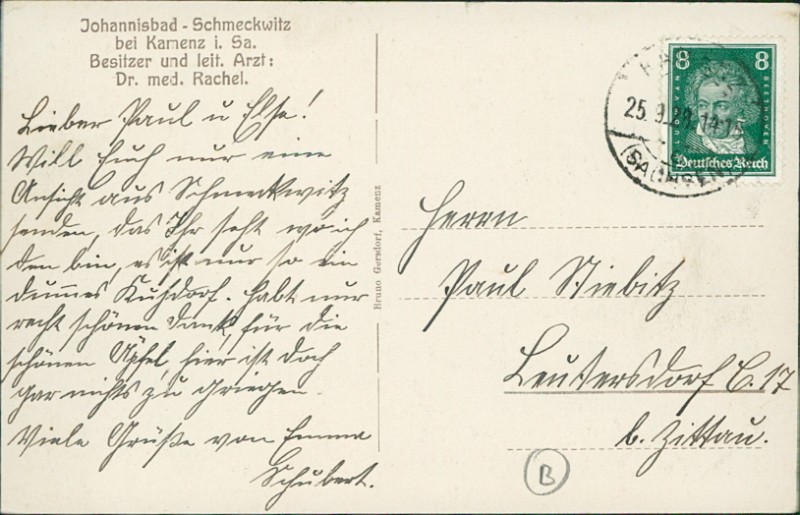 Johannisbad - Schmeckwitz
bei Kamenz i. Sa.
Besitzer und leit. Arzt:
Dr. med. Rachel.
Lieber Paul u Else!
Will Euch nur eine
Ansicht aus Schmeckwitz
senden, das Ihr seht wo ich
den bin, es ist nur so ein
dummes Kuhdorf. Habt nur
recht schönen Dank, für die
schönen Äpfel, hier ist doch
gar nichts zu griegen.
Viele Grüße von Emma
Schubert.
Bruno Gersdorf, Kamenz
8 8
LUDWIG VAN BEETHOVEN
Deutsches Reich
25. 9. 14-15
(SACHSEN)
Herrn
Paul Stiebitz
Leutersdorf C. 17
b. Zittau.
B